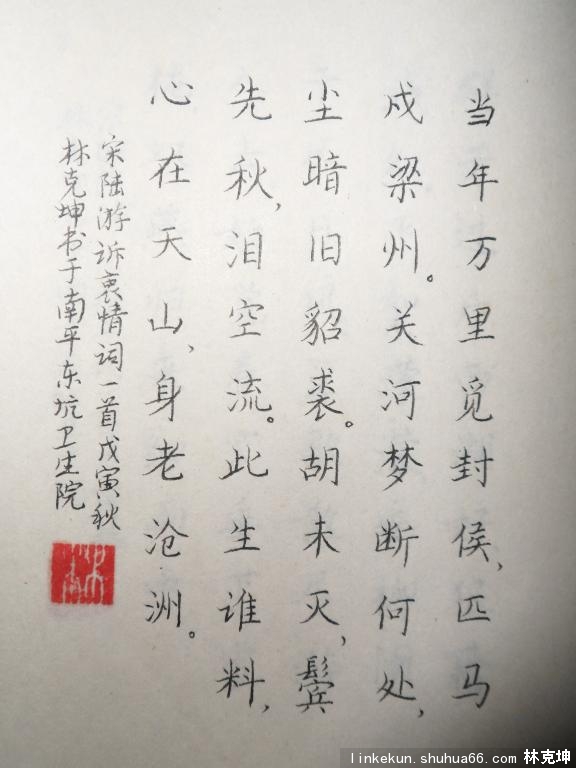 当年万里觅封侯，匹马
戍梁州。关河梦断何处，
尘暗旧貂裘。胡未灭，鬓
先秋，泪空流。此生谁料，
心在天山，身老沧洲。
宋陆游诉衷情词一首戊寅秋
林克坤书于南平东坑卫生院
林
linkekun.shuhua66.com 林克坤